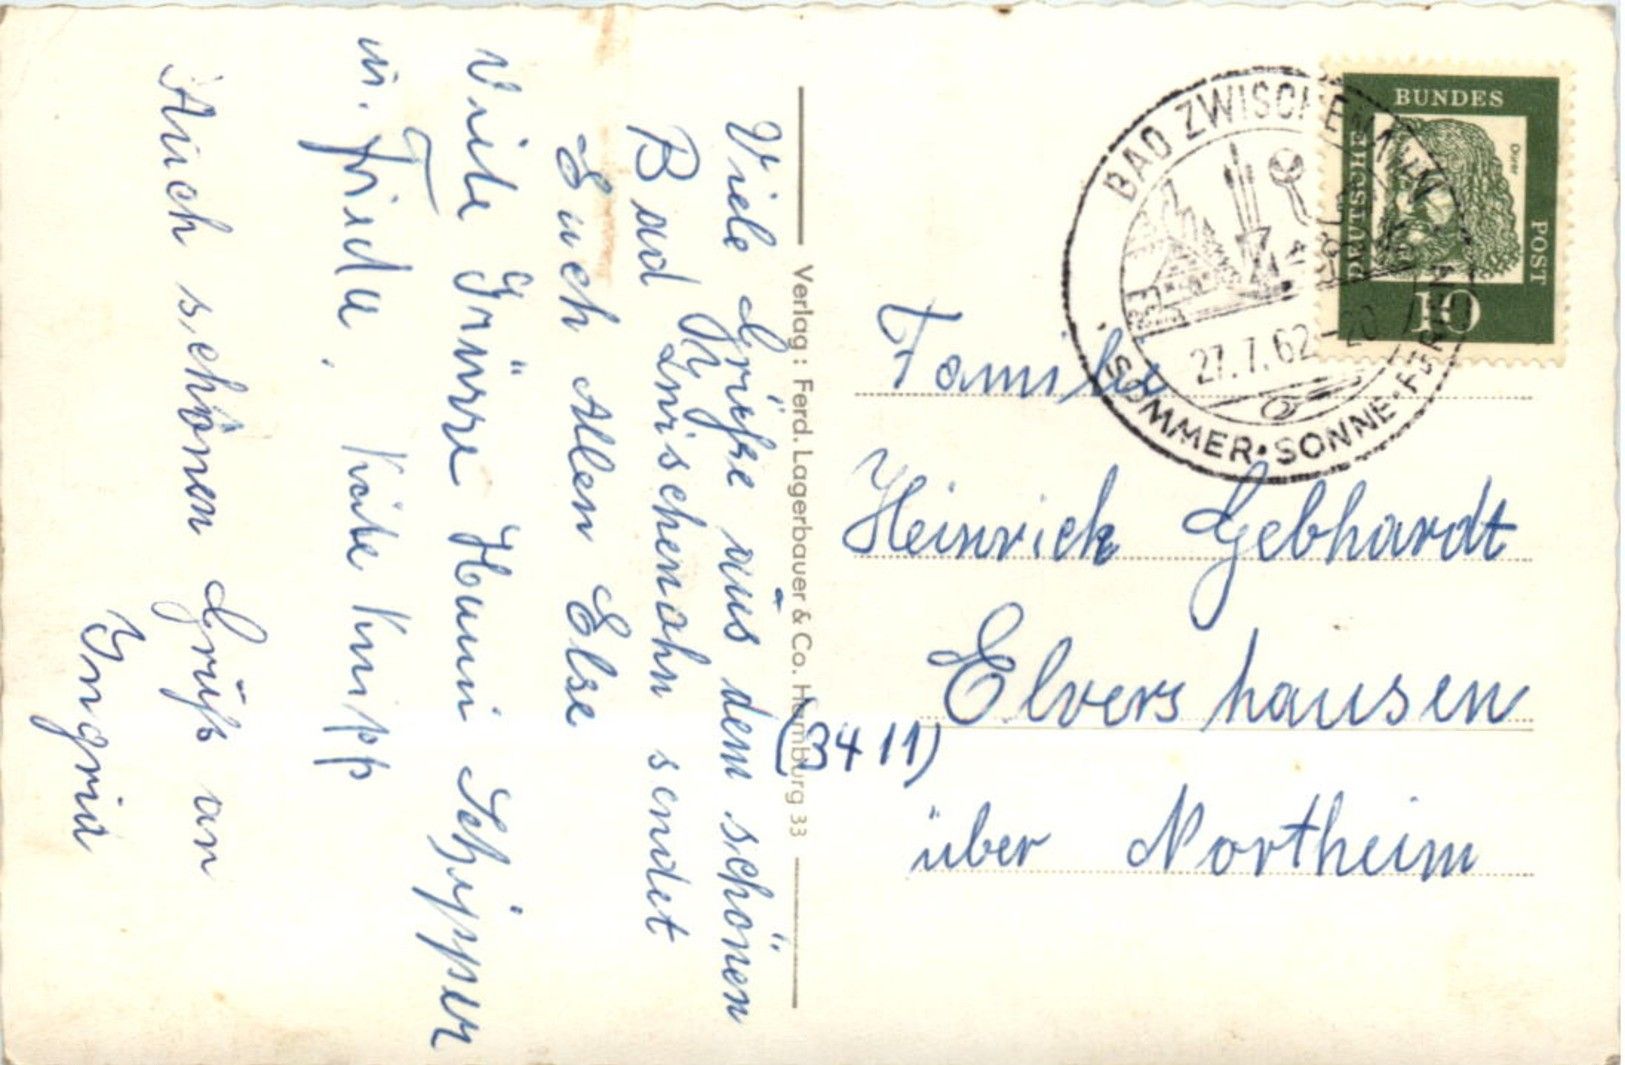 Viele Grüße aus dem schönen
Bad Zwischenahn sendet
Euch Allen Else
Viele Grüsse Hanni Schipper
u. Frieda. Käte Knipp
Auch schönen Gruß an
Ingrid
Verlag: Ferd. Lagerbauer & Co. Hamburg 33
BAD ZWISCHENAHN
27.7.62-20
SOMMER·SONNE·FERIEN
BUNDES
POST
Dürer
10
Familie
Heinrich Gebhardt
Elvershausen
(3411)
über Northeim